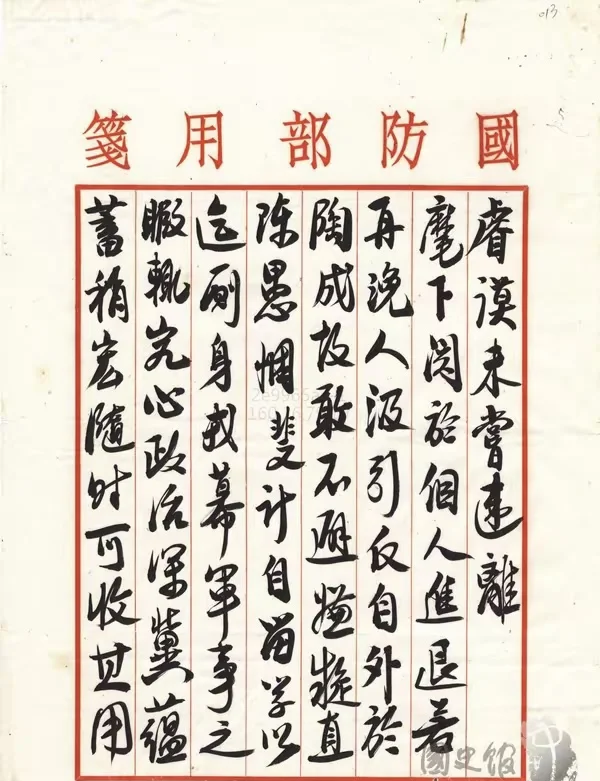 013
國防部用箋
睿謨未嘗違離
麾下関於個人進退若
再浼人汲引反自外於
陶成故敢不避嫌疑直
陳愚悃斐計自留学以
迄厠身戎幕軍事之
暇輒究心政治深冀蘊
蓄稍宏隨时可收其用
國史館